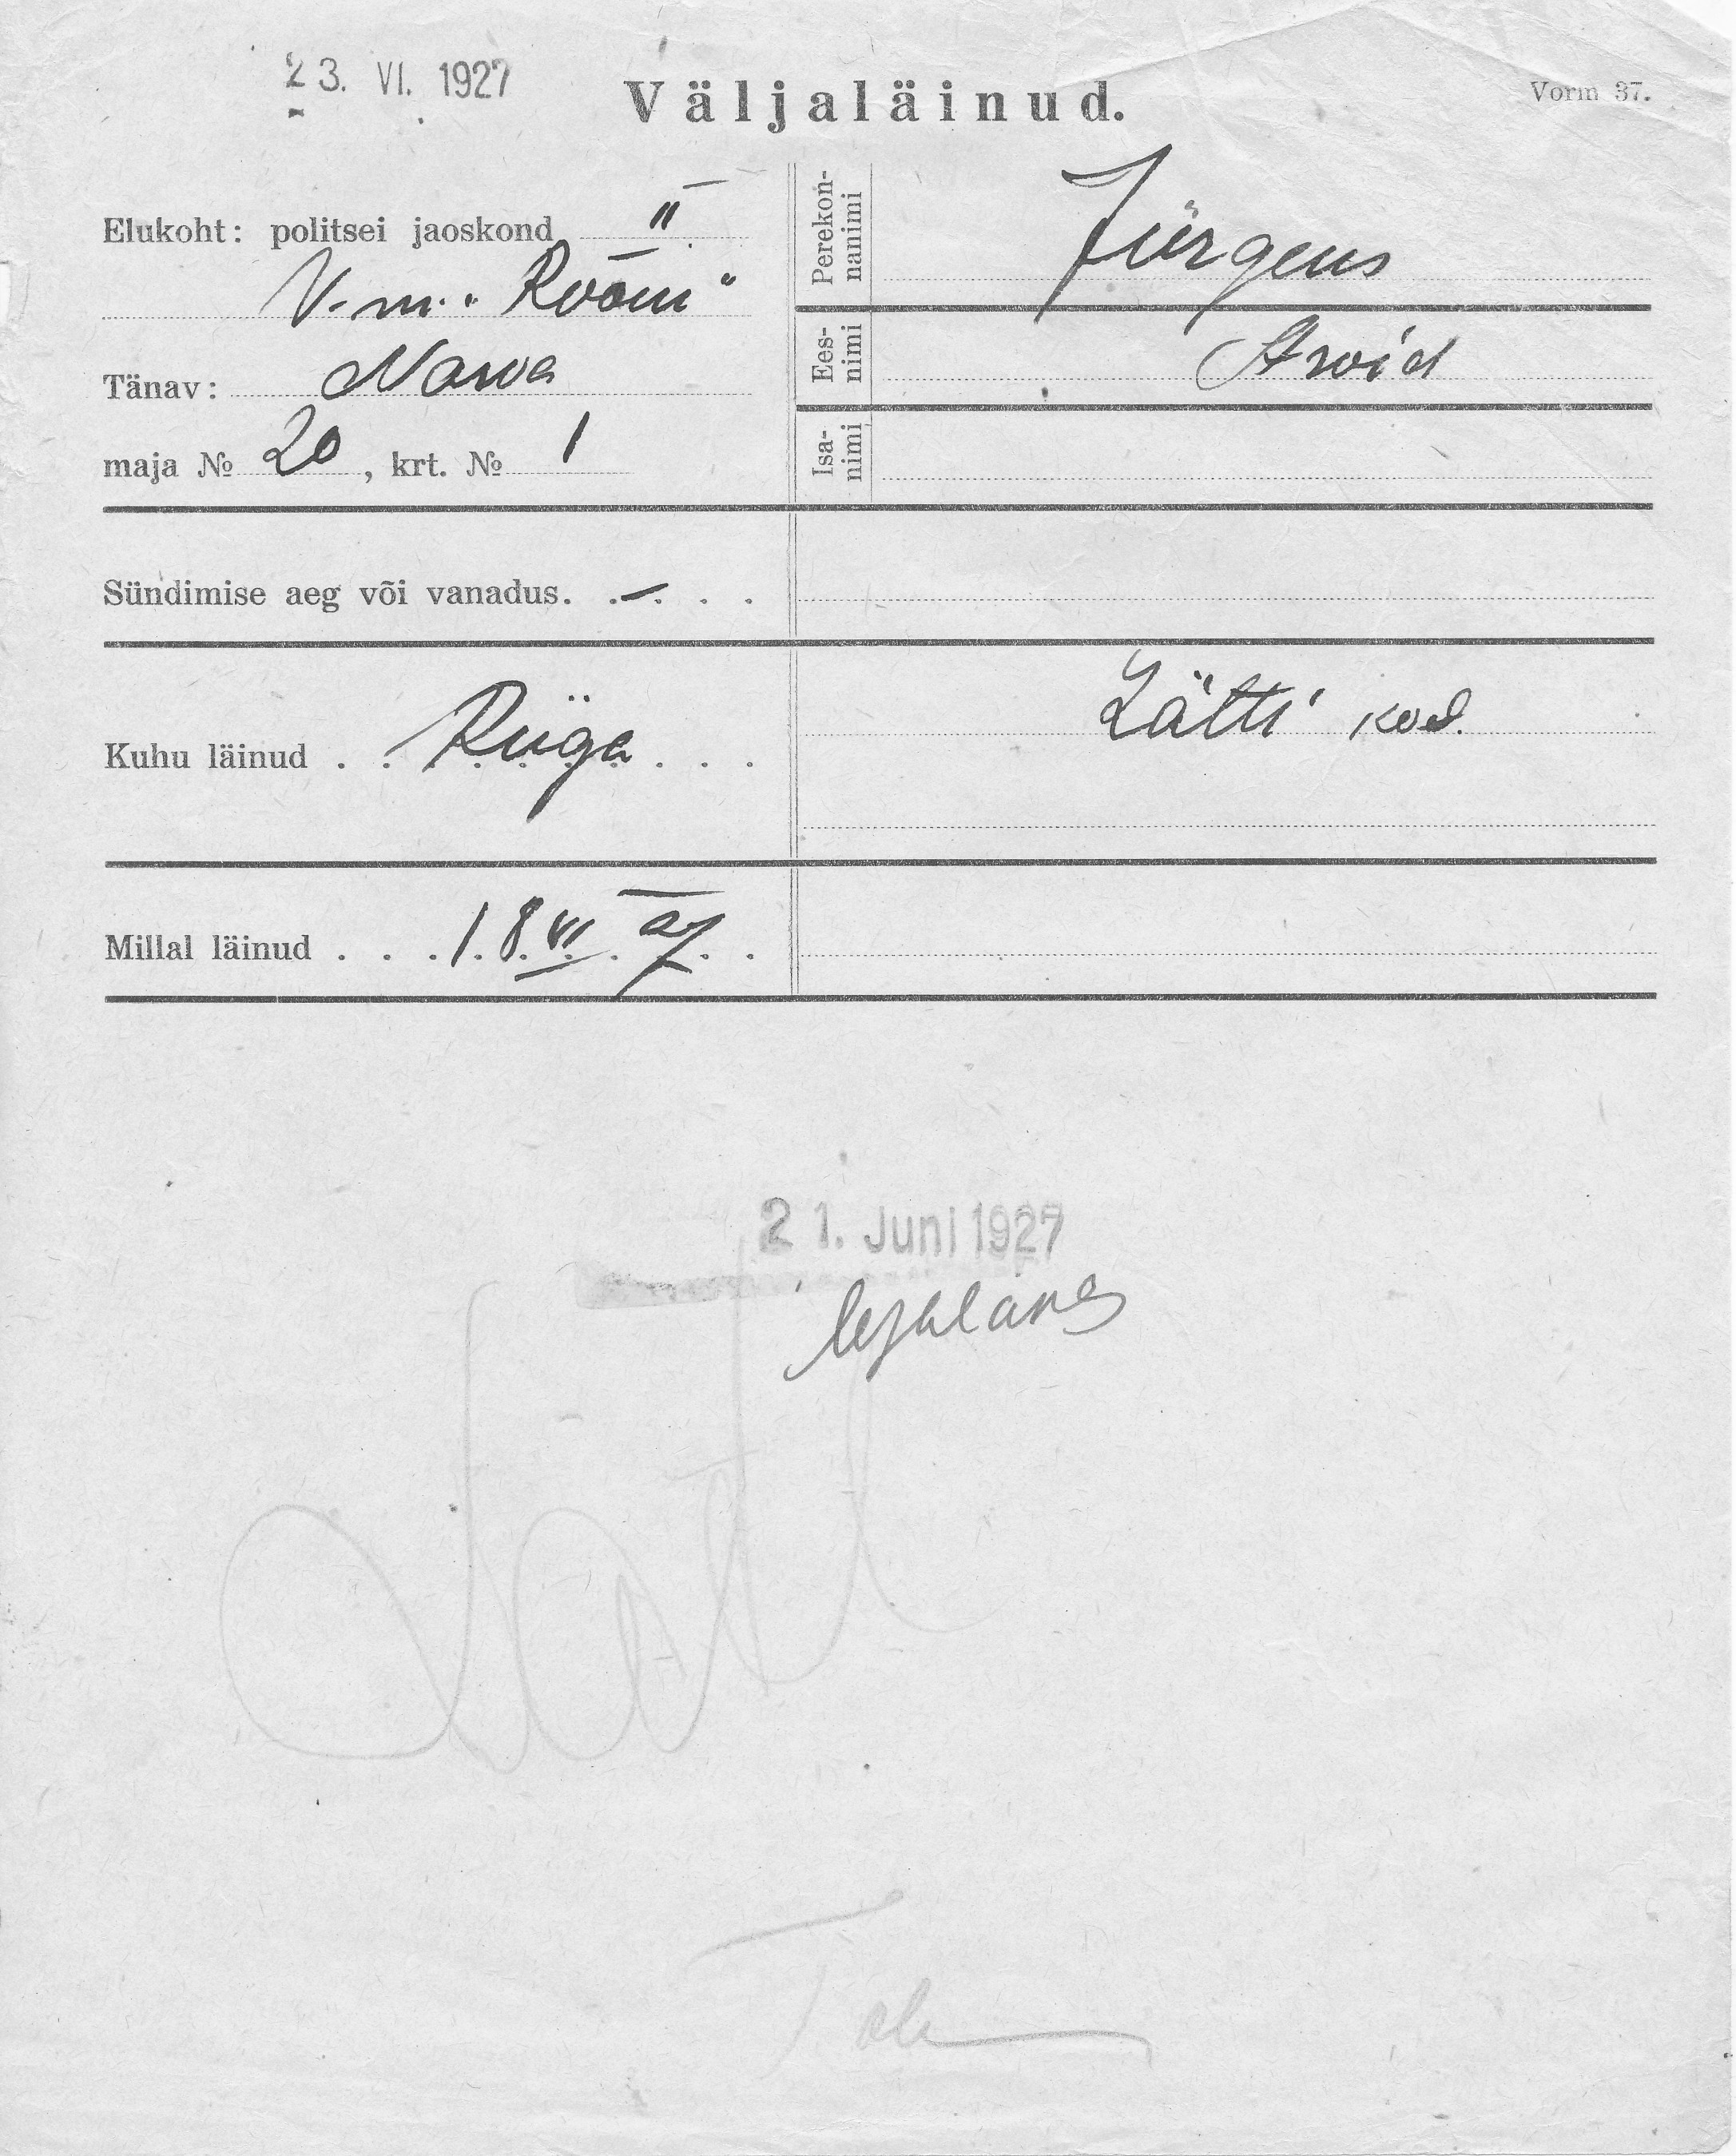 23. VI. 1927
Väljaläinud.
Vorm 37.
Elukoht: politsei jaoskond II
V. m. "Rõõm"
Tänav: Narva
maja № 20, krt. № 1
Perekon-
nanimi
Jürgens
Ees-
nimi
Arvid
Isa-
nimi
Sündimise aeg või vanadus. . – . . .
Kuhu läinud . . Riiga . . .
Lätti kod.
Millal läinud . . . 18. VI. 27. .
21. Juni 1927